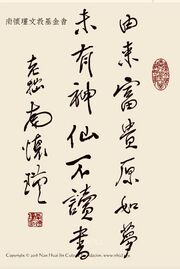 南懷瑾文教基金會
由来富貴原如夢
未有神仙不讀書
老拙 南懷瑾
Copyright © 2018 Nan Huai Jin Culture Foundation. www.nhjcf.tw